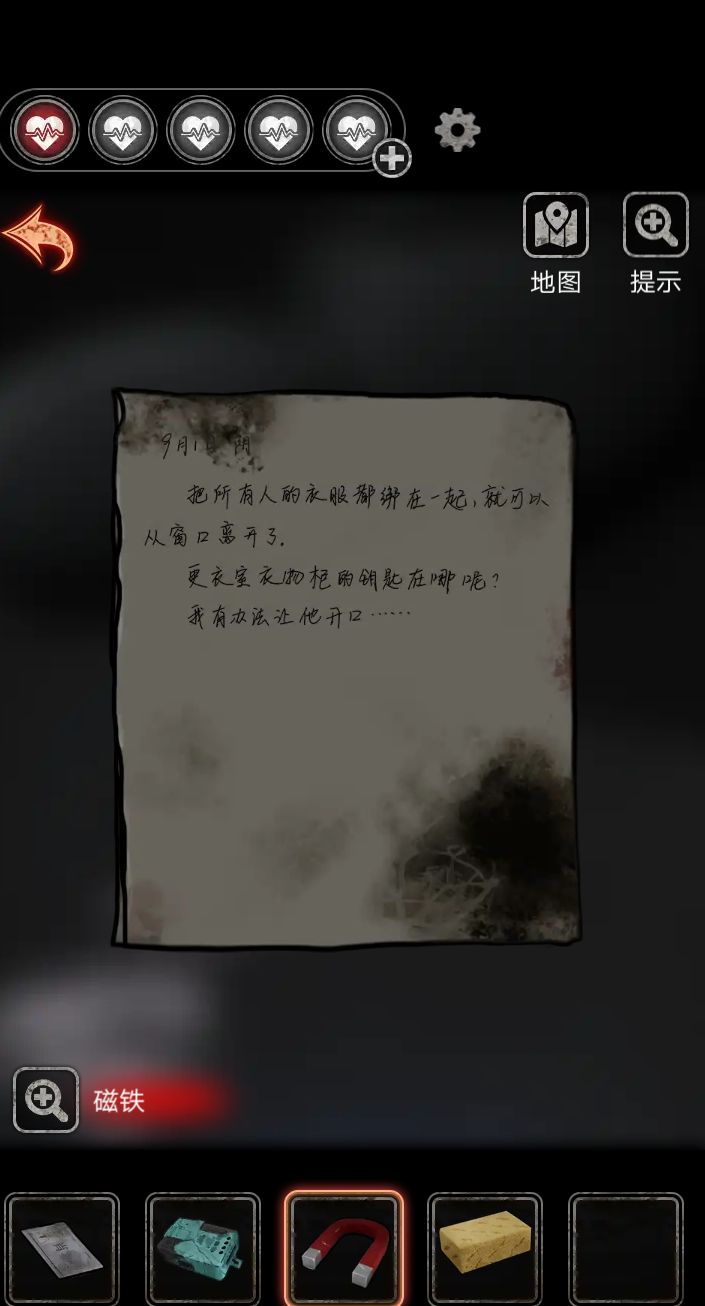 地图
提示
9月1日 阴
把所有人的衣服都绑在一起，就可以
从窗口离开了。
更衣室衣物柜的钥匙在哪呢？
我有办法让他开口……
磁铁